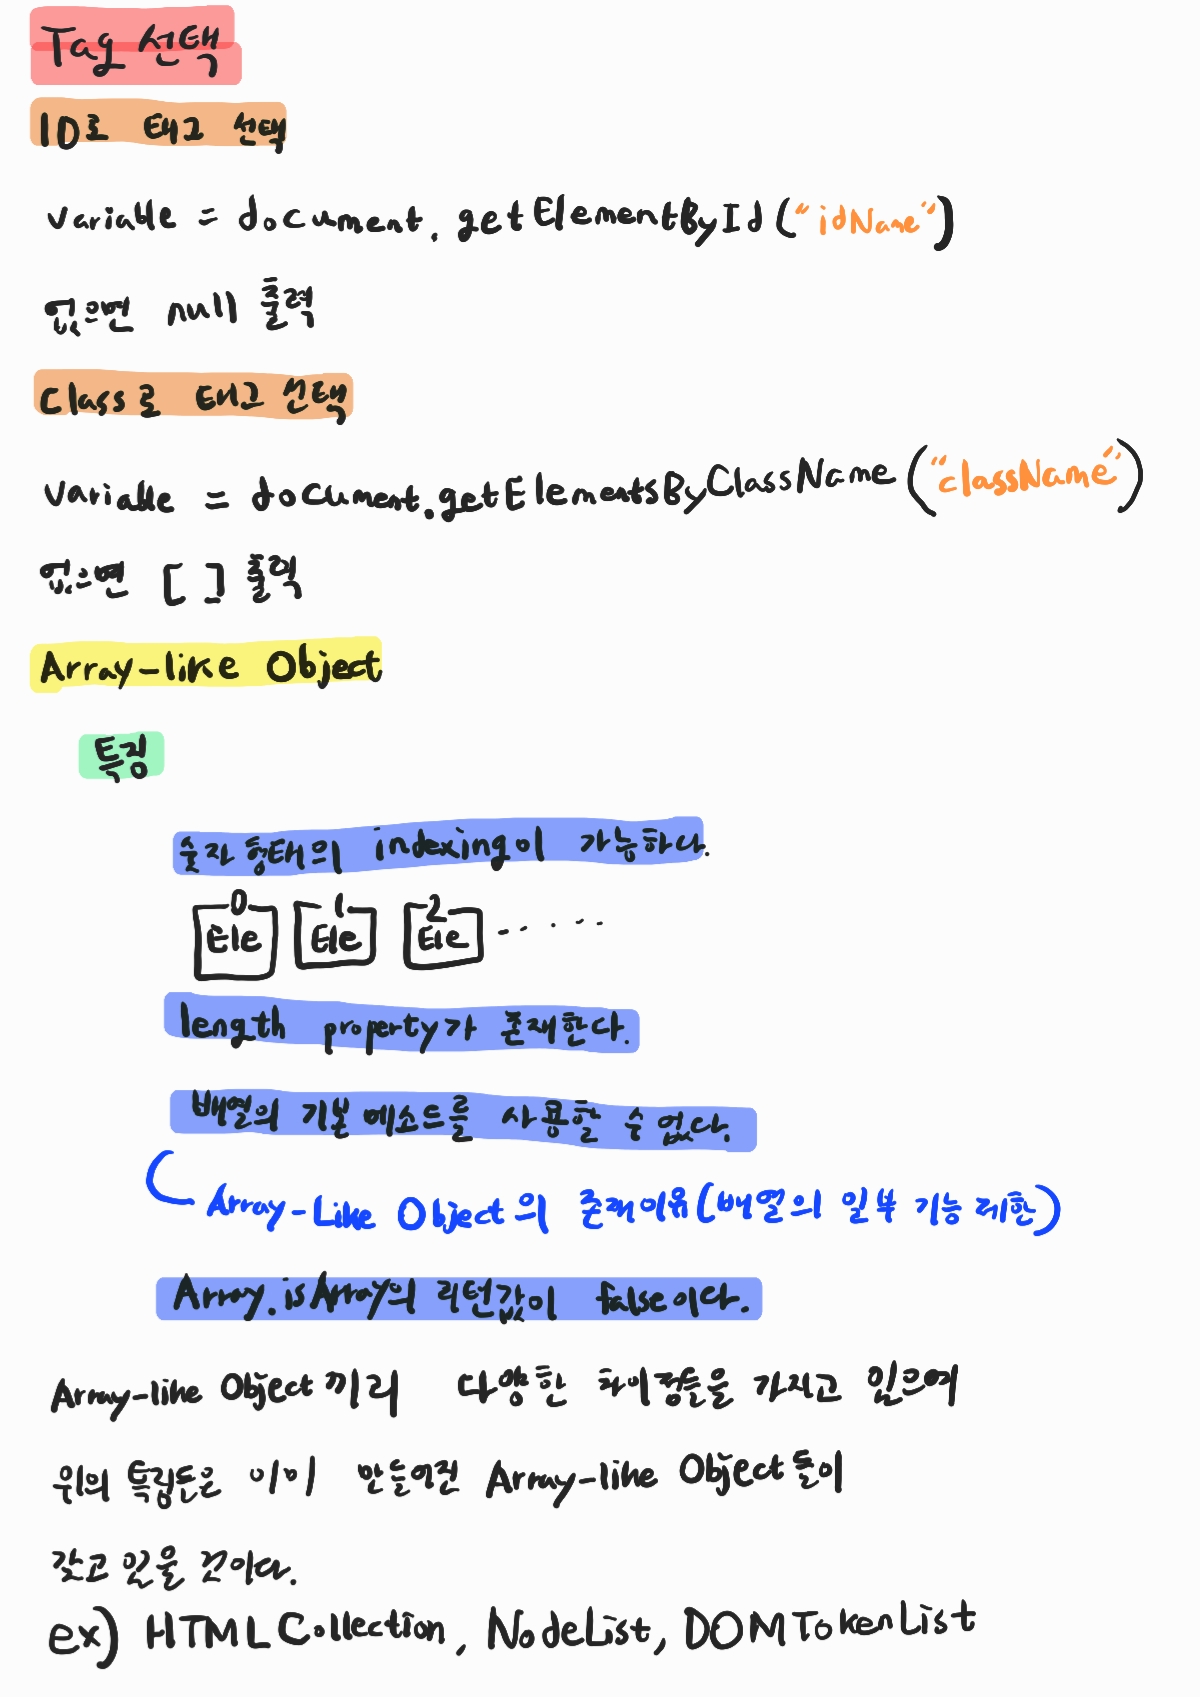 Tag 선택
ID로 태그 선택
variable = document.getElementById("idName")
없으면 null 출력
Class로 태그 선택
variable = document.getElementsByClassName("className")
없으면 [ ] 출력
Array-like Object
특징
숫자 형태의 indexing이 가능하다.
0 1 2
Ele Ele Ele .....
length property가 존재한다.
배열의 기본 메소드를 사용할 수 없다.
Array-Like Object의 존재이유(배열의 일부 기능 제한)
Array.isArray의 리턴값이 false이다.
Array-like Object끼리 다양한 차이점들을 가지고 있으며
위의 특징들은 이미 만들어진 Array-like Object들이
갖고 있을 것이다.
ex) HTMLCollection, NodeList, DOMTokenList